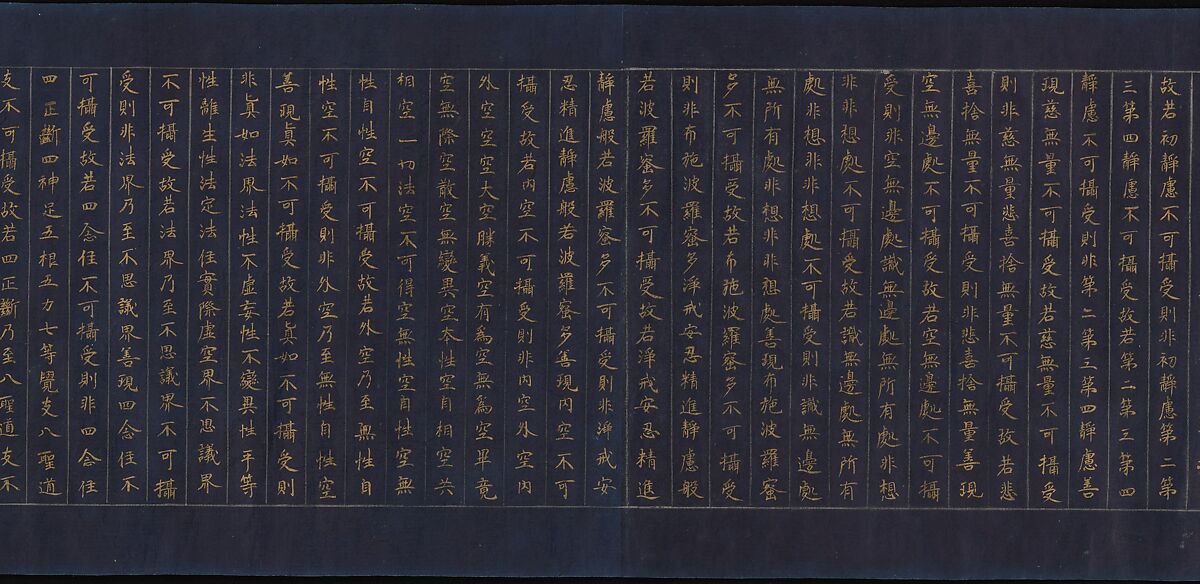 故若初靜慮不可攝受則非初靜慮第二第
三第四靜慮不可攝受故若第二第三第四
靜慮不可攝受則非第二第三第四靜慮善
現慈無量不可攝受故若慈無量不可攝受
則非慈無量悲喜捨無量不可攝受故若悲
喜捨無量不可攝受則非悲喜捨無量善現
空無邊處不可攝受故若空無邊處不可攝
受則非空無邊處識無邊處無所有處非想
非非想處不可攝受故若識無邊處無所有
處非想非非想處不可攝受則非識無邊處
無所有處非想非非想處善現布施波羅蜜
多不可攝受故若布施波羅蜜多不可攝受
則非布施波羅蜜多淨戒安忍精進靜慮般
若波羅蜜多不可攝受故若淨戒安忍精進
靜慮般若波羅蜜多不可攝受則非淨戒安
忍精進靜慮般若波羅蜜多善現內空不可
攝受故若內空不可攝受則非內空外空內
外空空空大空勝義空有為空無為空畢竟
空無際空散空無變異空本性空自相空共
相空一切法空不可得空無性空自性空無
性自性空不可攝受故若外空乃至無性自
性空不可攝受則非外空乃至無性自性空
善現真如不可攝受故若真如不可攝受則
非真如法界法性不虛妄性不變異性平等
性離生性法定法住實際虛空界不思議界
不可攝受故若法界乃至不思議界不可攝
受則非法界乃至不思議界善現四念住不
可攝受故若四念住不可攝受則非四念住
四正斷四神足五根五力七等覺支八聖道
支不可攝受故若四正斷乃至八聖道支不